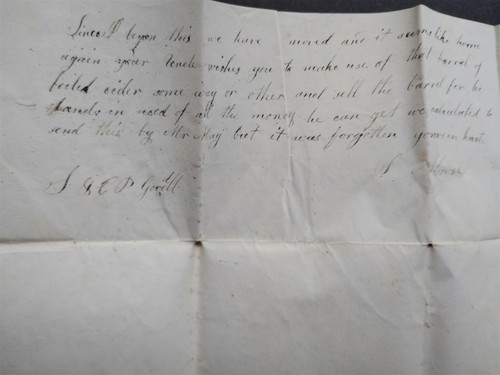 Since I begun this we have moved and it seems like home
again your Uncle wishes you to make use of that barrel of
boiled cider some way or other and sell the barrel for he
stands in need of all the money he can get we calculated to
send this by Mr May but it was forgotten yours in hast
S
S & C P